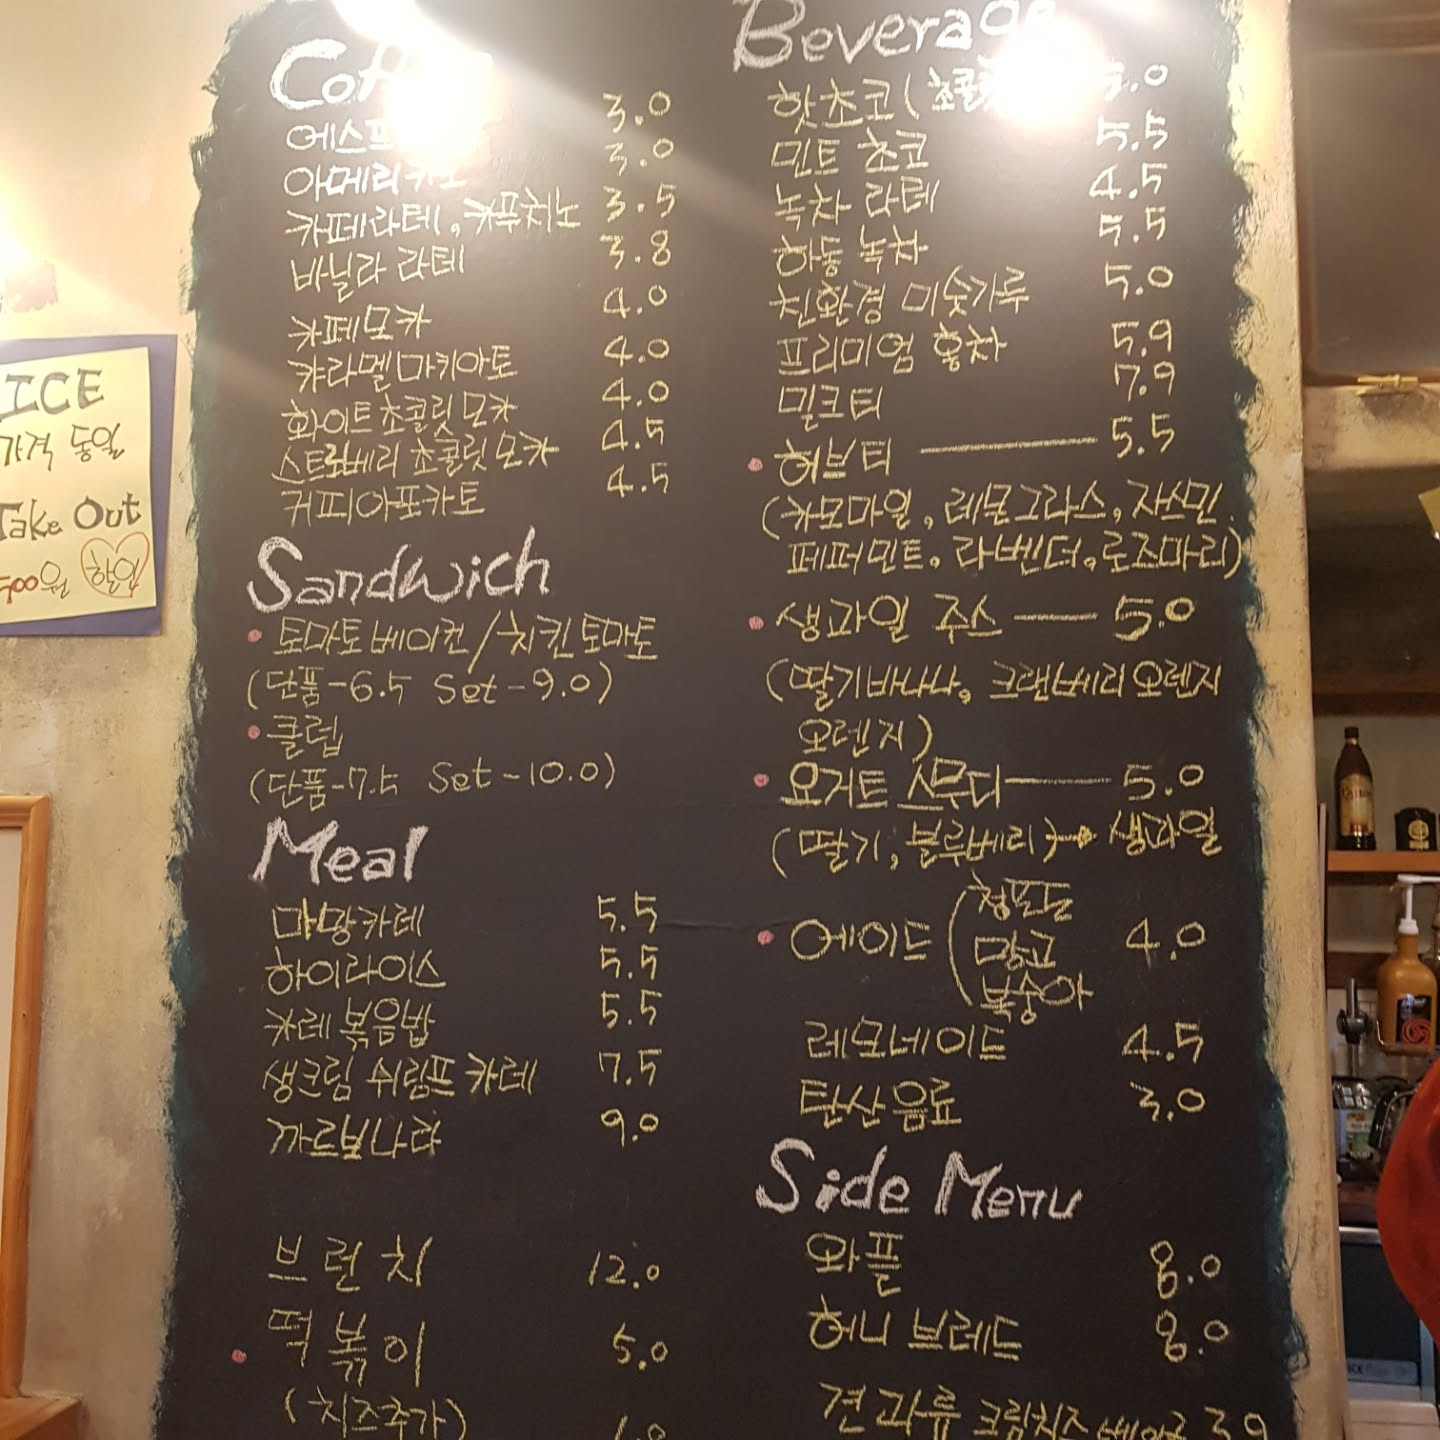 ICE
가격 동일
Take Out
500원 할인
Coffee
에스프 3.0
아메리카노 3.0
카페라테, 카푸치노 3.5
바닐라 라테 3.8
카페모카 4.0
캬라멜마키아토 4.0
화이트초콜릿모카 4.0
스트로베리 초콜릿모카 4.5
커피아포카토 4.5
Sandwich
• 토마토 베이컨/치킨토마토
(단품-6.5 Set-9.0)
• 클럽
(단품-7.5 Set-10.0)
Meal
마망카레 5.5
하이라이스 5.5
카레 볶음밥 5.5
생크림 쉬림프 카레 7.5
까르보나라 9.0
브런치 12.0
• 떡볶이 5.0
(치즈추가)
Beverage
핫초코(초콜 5.0
민트 초코 5.5
녹차 라테 4.5
하동 녹차 5.5
친환경 미숫가루 5.0
프리미엄 홍차 5.9
밀크티 7.9
• 허브티 —— 5.5
(카모마일, 레몬그라스, 자스민,
페퍼민트, 라벤더, 로즈마리)
• 생과일 주스 —— 5.0
(딸기바나나, 크랜베리오렌지
오렌지)
• 요거트 스무디 —— 5.0
(딸기, 블루베리)→ 생과일
• 에이드 (청포도 망고 복숭아 4.0
레모네이드 4.5
탄산음료 3.0
Side Menu
와플 8.0
허니 브레드 8.0
견과류 크림치즈 베이글 3.9